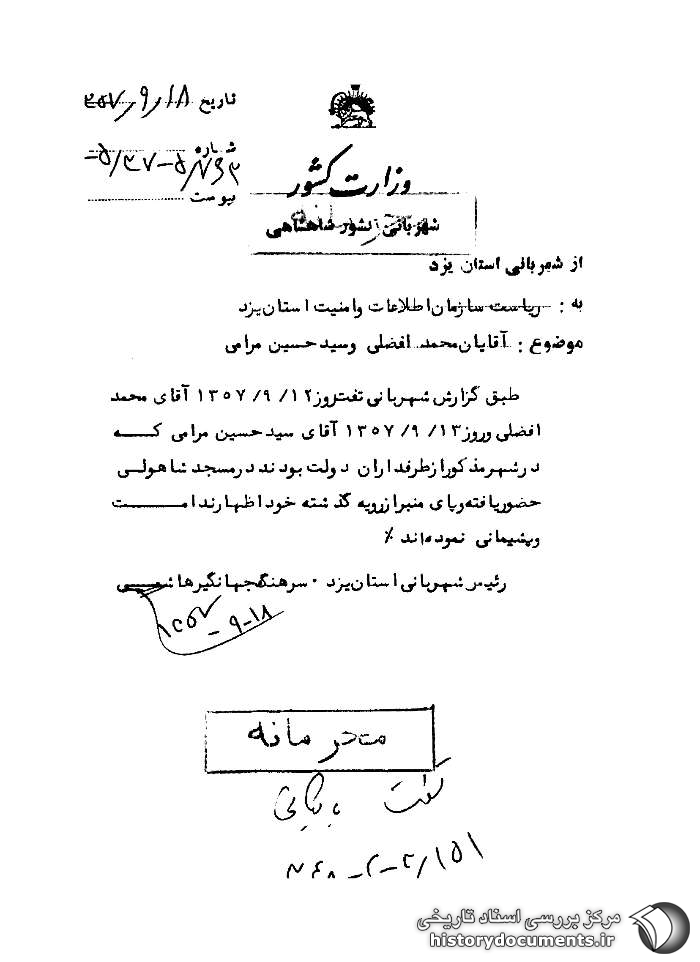 تاریخ ۱۸/۹/۳۵۷
شماره
پیوست
وزارت کشور
شهربانی کشور شاهنشاهی
از شهربانی استان یزد
به : ریاست سازمان اطلاعات وامنیت استان یزد
موضوع : آقایان محمد افضلی وسید حسین مرامی
طبق گزارش شهربانی تفت روز ۱۲/ ۹/ ۱۳۵۷ آقای محمد
افضلی وروز ۱۳/ ۹/ ۱۳۵۷ آقای سید حسین مرامی که
در شهر مذکور از طرفداران دولت بودند در مسجد شاه ولی
حضور یافته و پای منبر از رویه گذشته خود اظهار ندامت
وپشیمانی نموده اند ٪
رئیس شهربانی استان یزد ۰ سرهنگ جهانگیر هاشمی
۱۳۵۷-۹-۱۸
محرمانه
مرکز بررسی اسناد تاریخی
historydocuments.ir